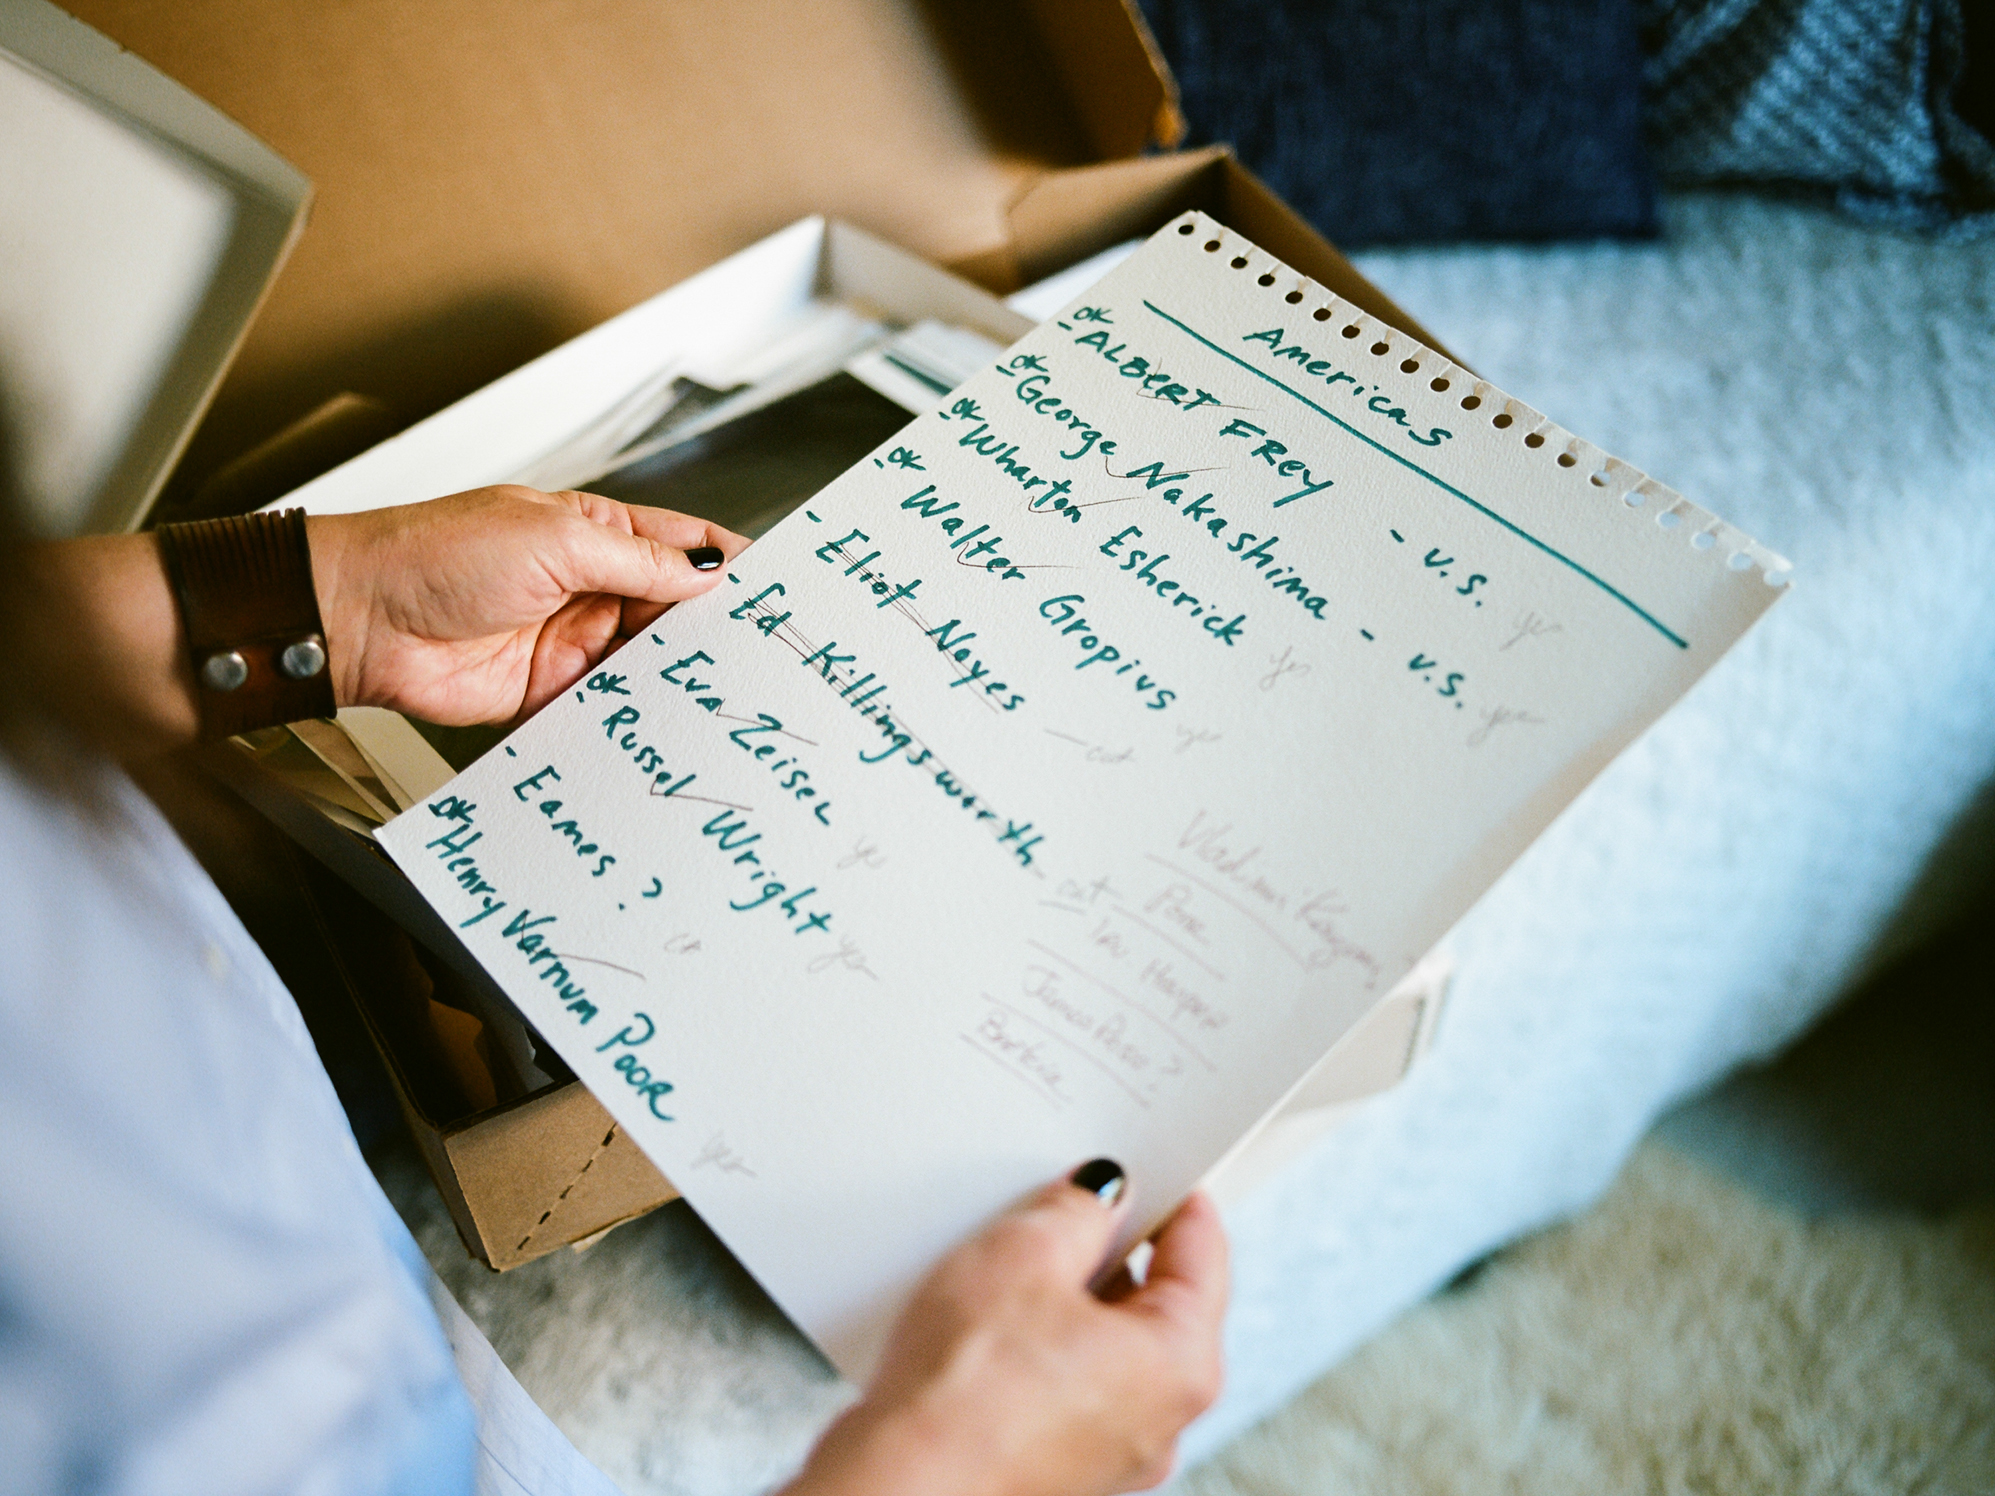 Americas
OK
- ALBERT FREY - V.S. yes
OK
- George Nakashima - V.S. yes
OK
- Wharton Esherick yes
OK
- Walter Gropius yes
- Eliot Noyes - cut
- Ed Killingsworth - cut
- Eva Zeisel yes
OK
- Russel Wright yes
- Eames ?
OK
Henry Varnum Poor yes
Vladimir Kagan
Poor
Harper
James Rose?
Bertoia